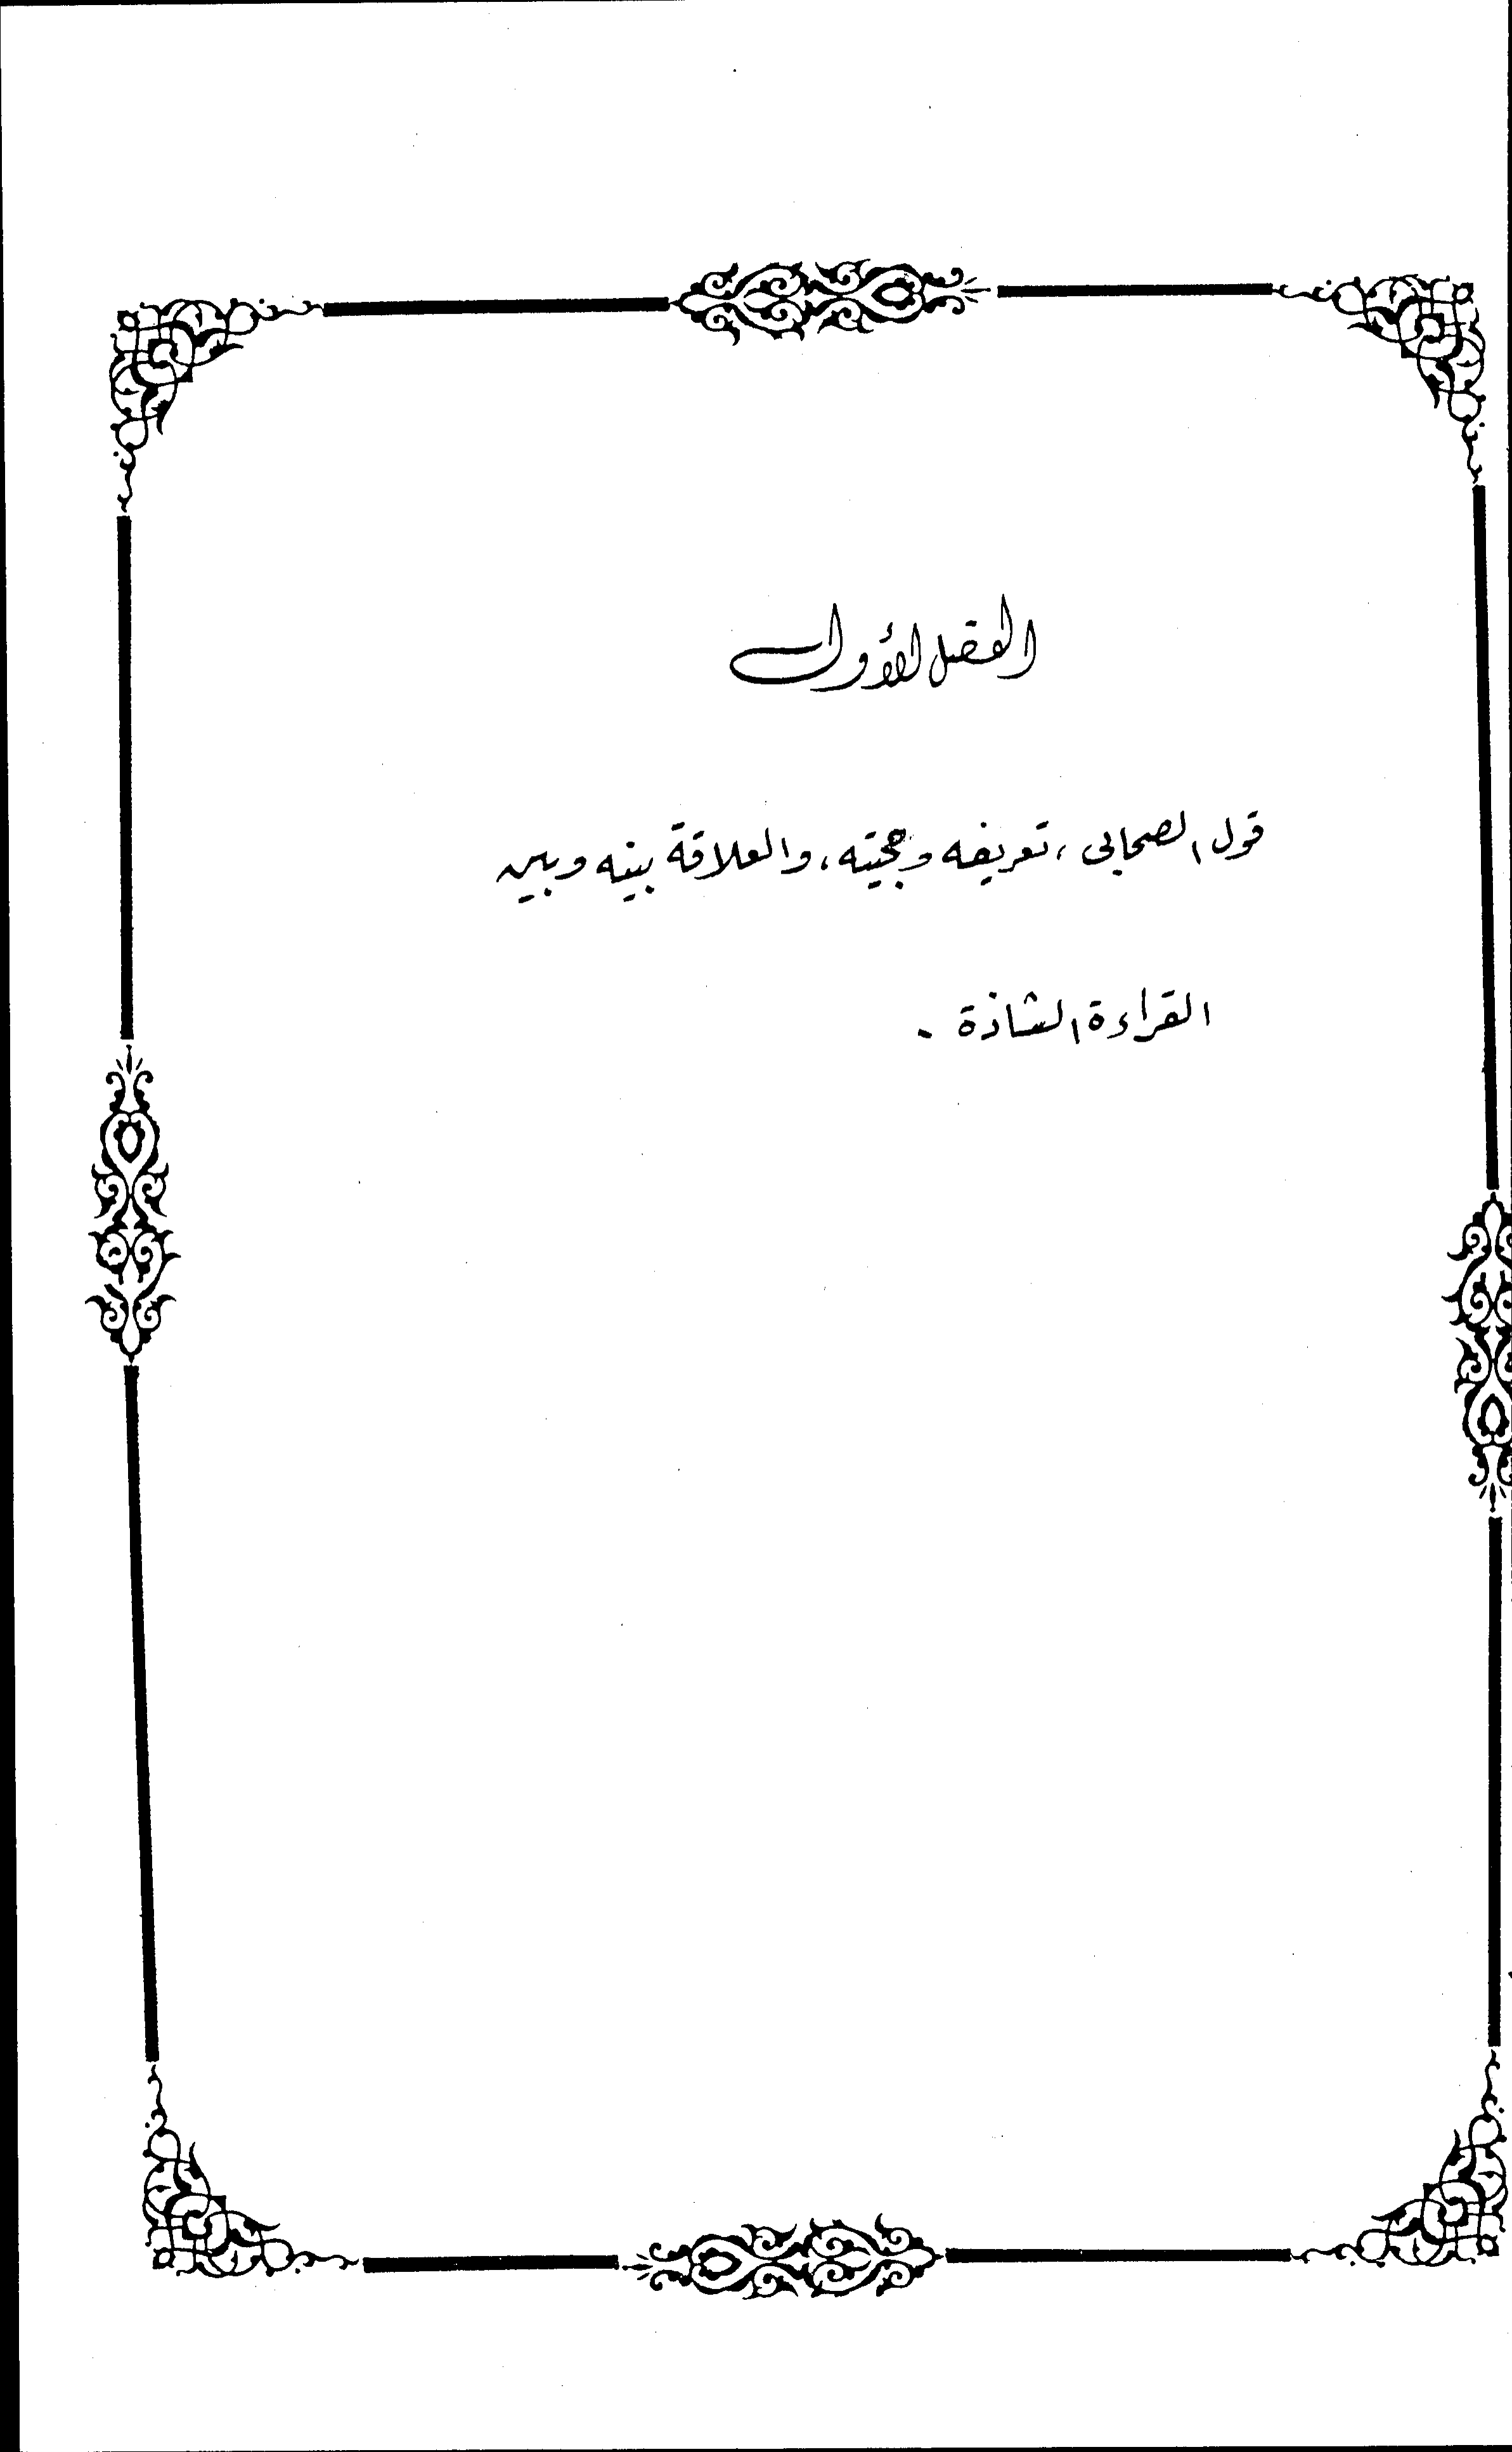 الفصل الأول
قول الصحابي، تعريفه وحجيته، والعلاقة بينه وبين
القراءة الشاذة .